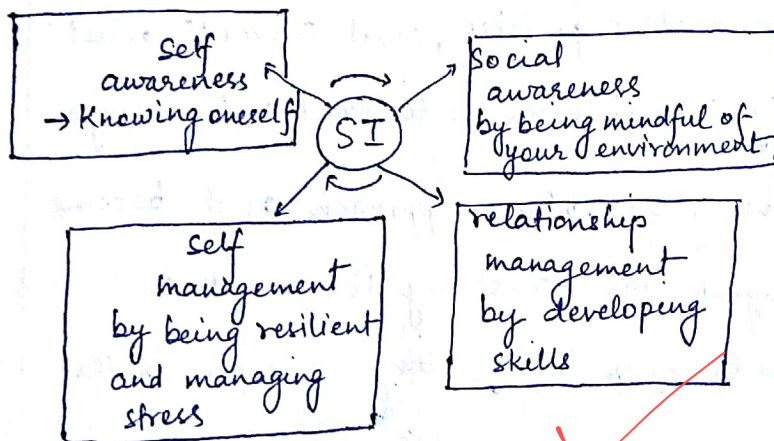 Self
awareness
→ Knowing oneself
Social
awareness
by being mindful of
your environment
SI
Self
management
by being resilient
and managing
stress
relationship
management
by developing
skills